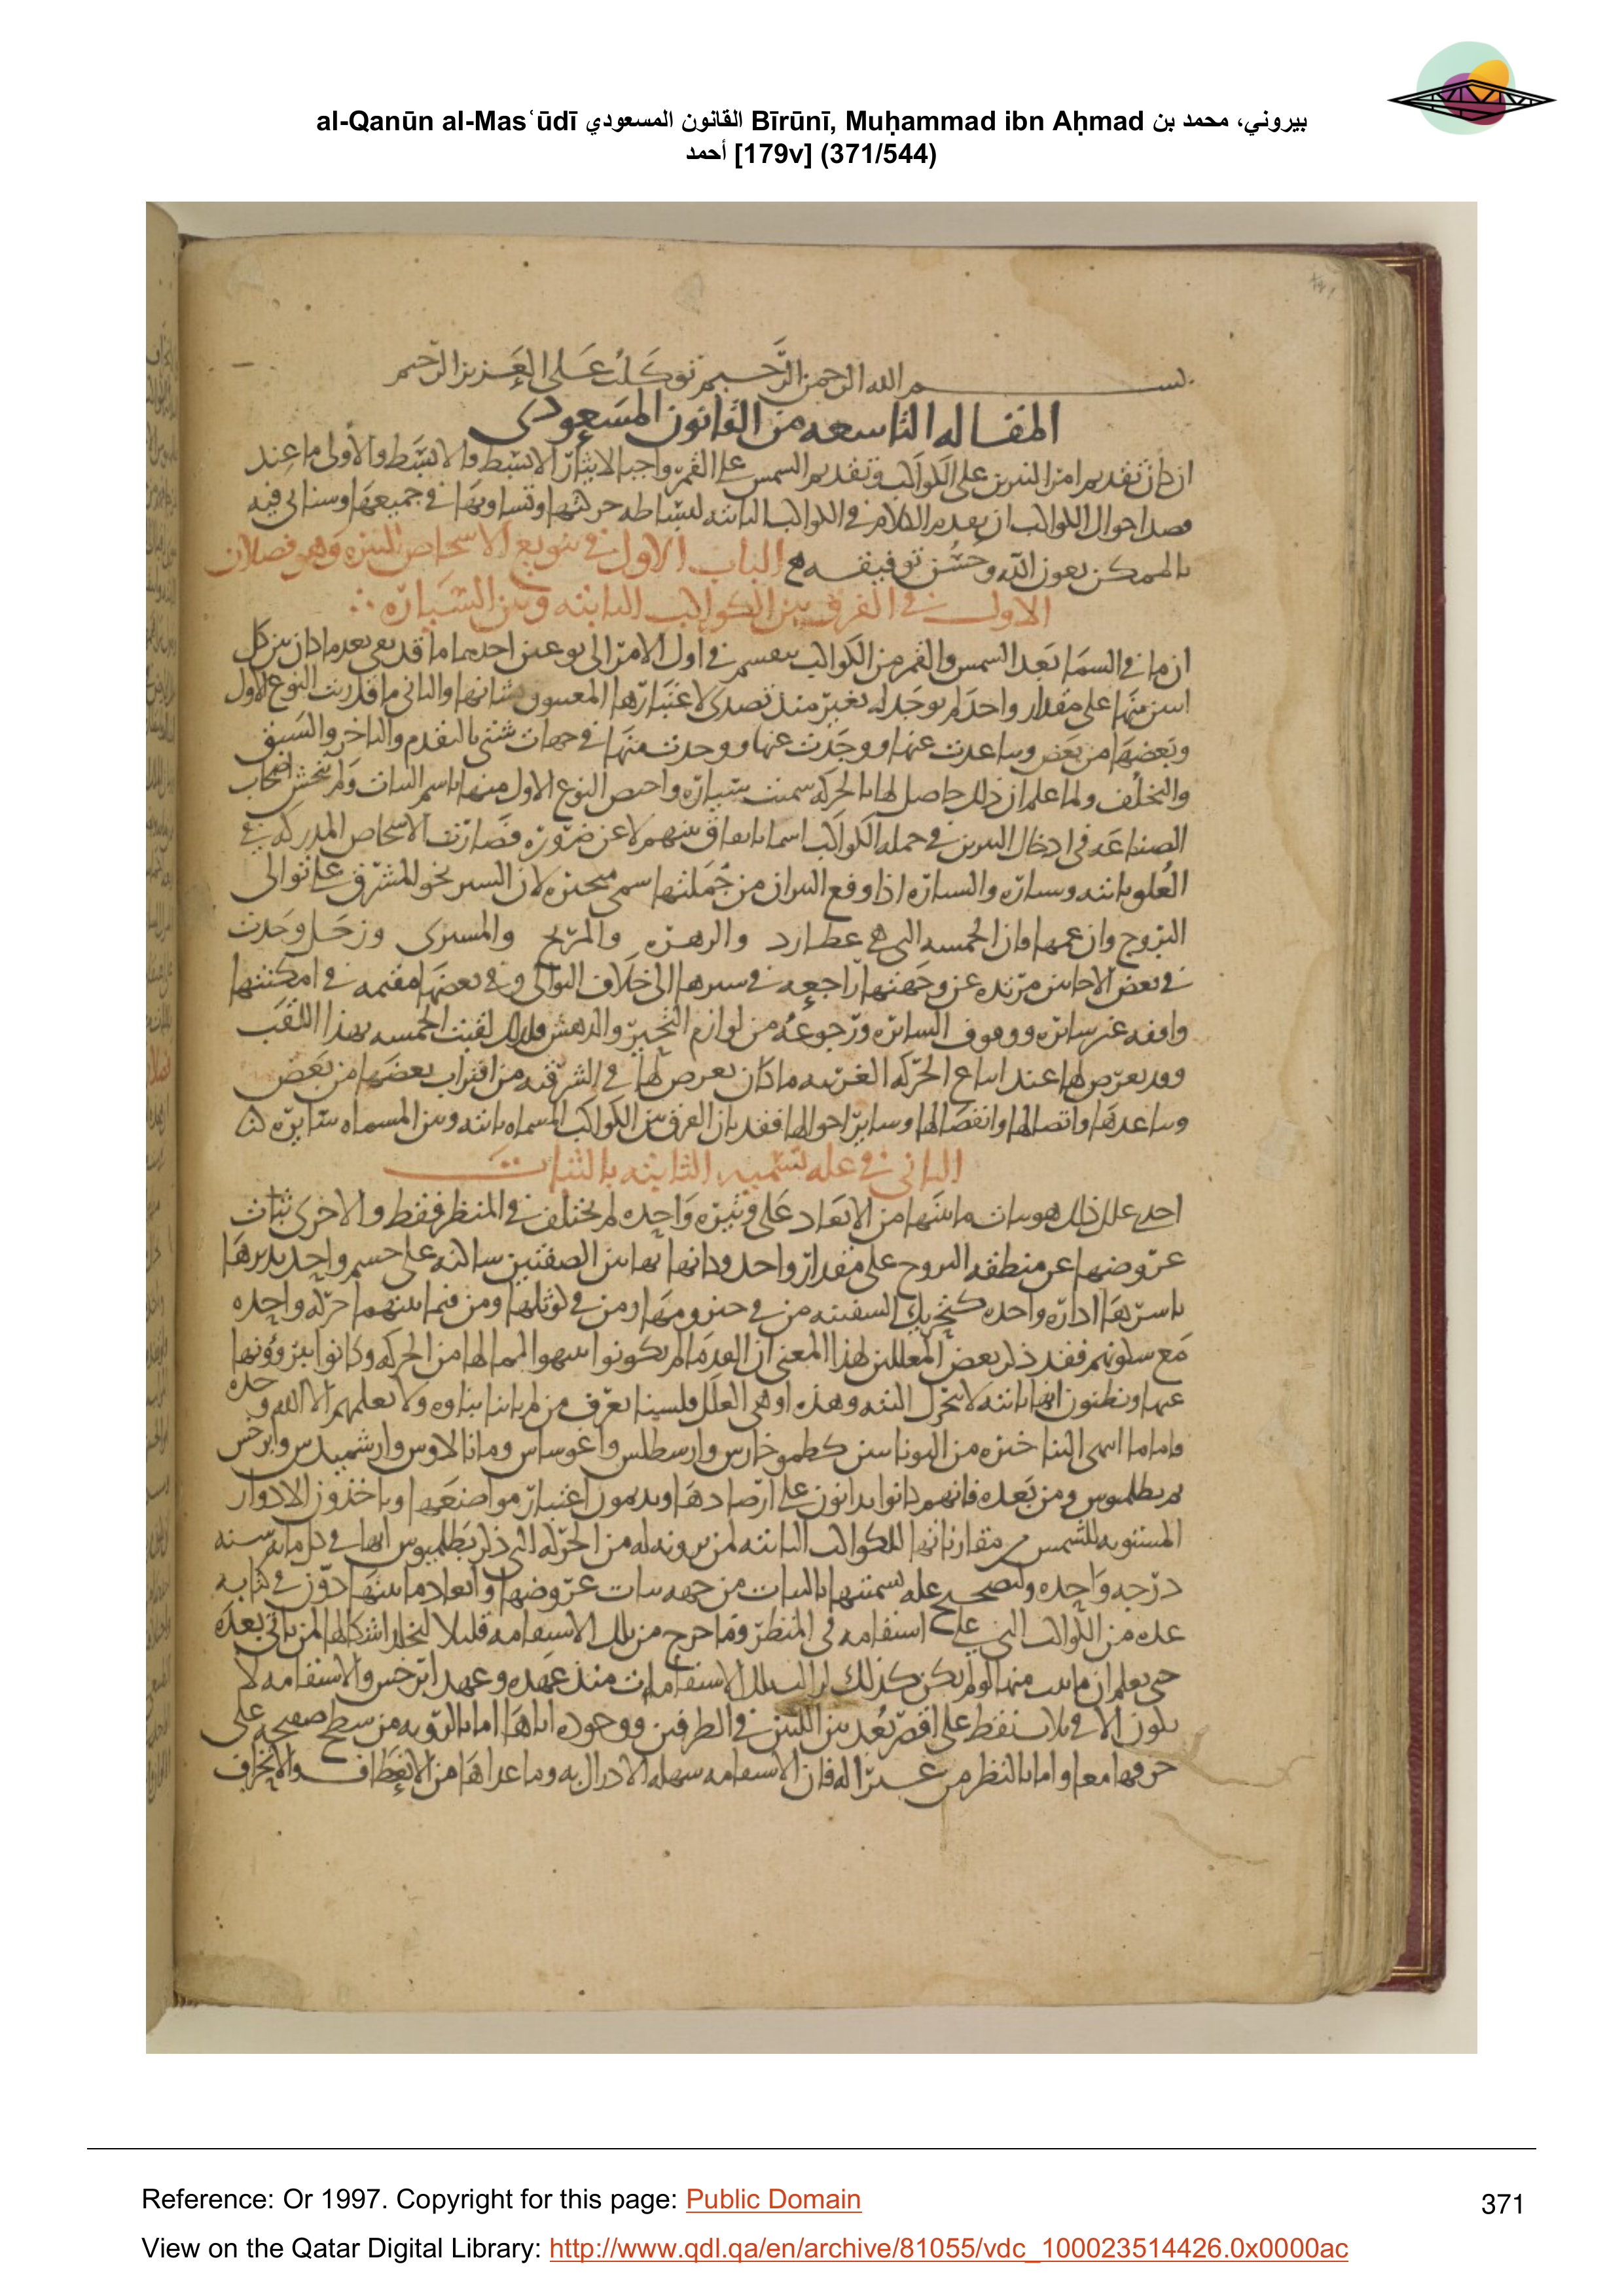 al-Qanūn al-Masʿūdī القانون المسعودي Bīrūnī, Muḥammad ibn Aḥmad بيروني، محمد بن
أحمد [179v] (371/544)
بسم الله الرحمن الرَّحيم توكلت على العَزيز الرّحيم
المقاله التاسعه من القانون المسعودى
ان كان تقديم امر النيرين على الكواكب وتقديم الشمس على القمر واجبا لايثار الابسط والابسط والأولى ما عند
قصد احوال الكواكب ان يقدم الكلام فى الكواكب الثابته لبساطه حركتها وتساويها فى جميعها وسناتى فيه
بالممكن بعون الله وحُسن توفيقه الباب الاول فى تنويع الاشخاص النيره وهو فصلان
الاول فى الفرق بين الكواكب الثابته وبين السَّيّاره
ان ما فى السمَا بَعد الشمس والقمر من الكواكب ينقسم فى اول الامر الى نوعين احدهما ما قد بقى بعد ما كان بين كل
اثنين منها على مقدار واحد لم يوجد له تغير منذ تصدى لاعتبارها المعنيون بشانها والثانى ما قاربت النوع الاول
وبَعضهَا من بَعض وتباعدت عنها ووجدت عنها ووجدت منها فى جهات شتى بالتقدم والتاخر والسَبق
والتخلف ولما علم ان ذلك حاصل لها بالحركه سميت سَيّاره واختص النوع الاول منها باسم الثبات ولم يتحش اصحاب
الصناعَه فى ادخال النيرين فى جمله الكواكب اسما باتفاق بينهم لا عن ضروره فصَارت الاشخاص المدركه فى
العُلو ثابته وسياره والسياره اذا وقع النيران من جُملتها سمى متحيره لان السير نحو المشرق على توالى
البروج وان عمها فان الخمسه التى هى عطارد والزهره والمريخ والمشترى وزحَل وجَدت
فى بعض الاحايين مرتده عن وجهتها راجعه فى سيرها الى خلاف التوالى وفى بعضها مقيمه فى امكنتها
واقفه غير سايره ووقوف السايره ورجوعه من لوازم التحير والدهش فلذلك لقبت الخمسه بهذا اللقَب
وقد يعرض لها عند اتباع الحركه الغربيه ما كان يعرض لها فى الشرقيه من اقتراب بعضها من بَعض
وتباعدها واتصالها وانفصالها وساير احوالها فقد بان الفرق بين الكواكب المسماه ثابته وبين المسماه سَايره
الثانى فى عله تسميه الثابته بالثبات
احد علل ذلك هو ثبات ما بينها من الابعَاد على وتيره وَاحده لم يختلف فى المنظر فقط والاخرى ثبات
عروضها عن منطقه البروج على مقدار واحد وكانها بهاتين الصفتين ساكنه على جسم واحد يديرها
باسرها اداره واحده كتحريك السفينه من فى حيزومهَا ومن فى كوثلها ومن فيما بينهما حركه واحده
مَع سكونهم فقد ذكر بعض المعللين لهذا المعنى ان القدمَا لم يكونوا تنبهوا لما لها من الحركه وكانوا يبرؤونها
عنها ويظنون انها ثابته لا تتحرك البته وهذه اوهى العلَل فلسنا نعرف من لم ياتنا نباوه ولا يعلمهم الا الله وحده
فاما ما انتهى الينا خبره من اليونانيين كطيموخارس وارسطلس واغوساس ومانالاوس وارشميدس وابرخس
ثم بطلميوس ومن بَعده فانهم كانوا يدابون على ارصادهَا ويديمون اعتبار مواضعَها وياخذون الادوار
المستويه للشمس مقارناتها للكواكب الثابته لمن يرونه له من الحركه التى ذكر بَطلميوس انها فى كل مايه سنه
درَجه وَاحده ولتصحيح عله تسميتها بالثبات من جهه ثبات عروضها وابعاد ما بينها دوّن فى كتابه
عده من الكواكب التى على استقامه فى المنظر وما خرج من تلك الاستقامه قليلا لتخلد اشكالها لمن ياتى بعدَه
حتى يعلم ان ما ثبت منها لو لم يكن كذلك لزالت تلك الاستقامات منذ عَهده وعهد ابرخس والاستقامه لا
تكون الا فى ثلاث نقط على اقصر بُعد بين اللتين فى الطرفين ووجوده اياهَا اما بالرويه من سطح صفيحه على
حرفها معا واما بالنظر من غير اله فان الاستقامه سهله الادراك به وما عداها من الانعطاف والانحراف
Reference: Or 1997. Copyright for this page: Public Domain
371
View on the Qatar Digital Library: http://www.qdl.qa/en/archive/81055/vdc_100023514426.0x0000ac